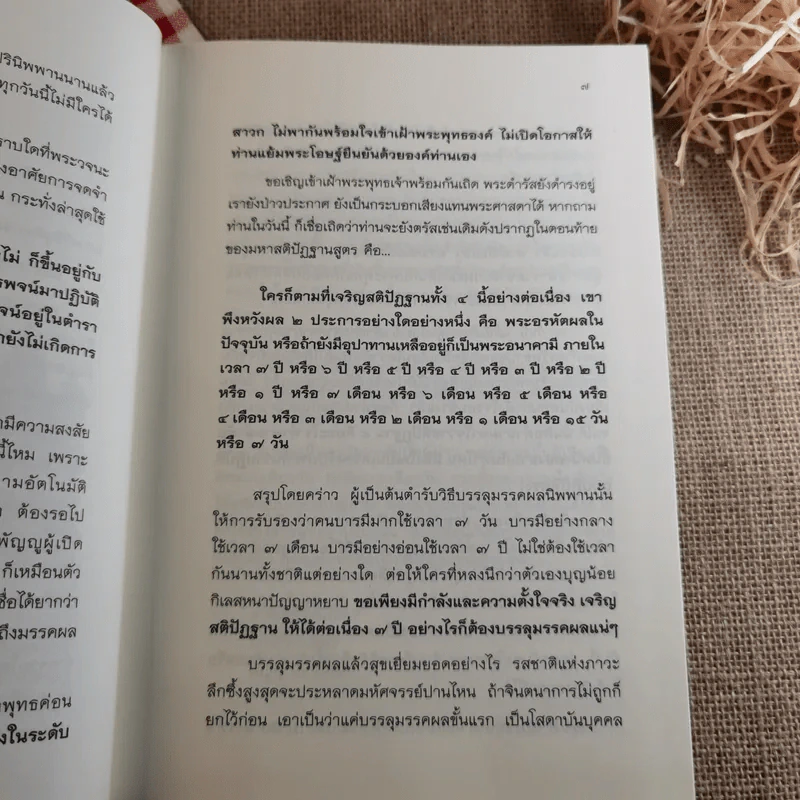 ปรินิพพานนานแล้ว
ทุกวันนี้ไม่มีใครได้
ราบใดที่พระวจนะ
งอาศัยการจดจำ
น กระทั่งล่าสุดใช้
ไม่ ก็ขึ้นอยู่กับ
รพจน์มาปฏิบัติ
จน์อยู่ในตำรา
ายังไม่เกิดการ
ามีความสงสัย
นี้ไหม เพราะ
ามอัตโนมัติ
ง ต้องรอไป
พัญญูผู้เปิด
ก็เหมือนตัว
ชื่อได้ยากว่า
ถึงมรรคผล
าพุทธค่อน
งในระดับ
๗
สาวก ไม่พากันพร้อมใจเข้าเฝ้าพระพุทธองค์ ไม่เปิดโอกาสให้
ท่านแย้มพระโอษฐ์ยืนยันด้วยองค์ท่านเอง
ขอเชิญเข้าเฝ้าพระพุทธเจ้าพร้อมกันเถิด พระดำรัสยังดำรงอยู่
เรายังป่าวประกาศ ยังเป็นกระบอกเสียงแทนพระศาสดาได้ หากถาม
ท่านในวันนี้ ก็เชื่อเถิดว่าท่านจะยังตรัสเช่นเดิมดังปรากฏในตอนท้าย
ของมหาสติปัฏฐานสูตร คือ...
ใครก็ตามที่เจริญสติปัฏฐานทั้ง ๔ นี้อย่างต่อเนื่อง เขา
พึงหวังผล ๒ ประการอย่างใดอย่างหนึ่ง คือ พระอรหัตผลใน
ปัจจุบัน หรือถ้ายังมีอุปาทานเหลืออยู่ก็เป็นพระอนาคามี ภายใน
เวลา ๗ ปี หรือ ๖ ปี หรือ ๕ ปี หรือ ๔ ปี หรือ ๓ ปี หรือ ๒ ปี
หรือ ๑ ปี หรือ ๗ เดือน หรือ ๖ เดือน หรือ ๕ เดือน หรือ
๔ เดือน หรือ ๓ เดือน หรือ ๒ เดือน หรือ ๑ เดือน หรือ ๑๕ วัน
หรือ ๗ วัน
สรุปโดยคร่าว ผู้เป็นต้นตำรับวิธีบรรลุมรรคผลนิพพานนั้น
ให้การรับรองว่าคนบารมีมากใช้เวลา ๗ วัน บารมีอย่างกลาง
ใช้เวลา ๗ เดือน บารมีอย่างอ่อนใช้เวลา ๗ ปี ไม่ใช่ต้องใช้เวลา
กันนานทั้งชาติแต่อย่างใด ต่อให้ใครที่หลงนึกว่าตัวเองบุญน้อย
กิเลสหนาปัญญาหยาบ ขอเพียงมีกำลังและความตั้งใจจริง เจริญ
สติปัฏฐาน ให้ได้ต่อเนื่อง ๗ ปี อย่างไรก็ต้องบรรลุมรรคผลแน่ๆ
บรรลุมรรคผลแล้วสุขเยี่ยมยอดอย่างไร รสชาติแห่งภาวะ
ลึกซึ้งสูงสุดจะประหลาดมหัศจรรย์ปานไหน ถ้าจินตนาการไม่ถูกก็
ยกไว้ก่อน เอาเป็นว่าแค่บรรลุมรรคผลขั้นแรก เป็นโสดาบันบุคคล